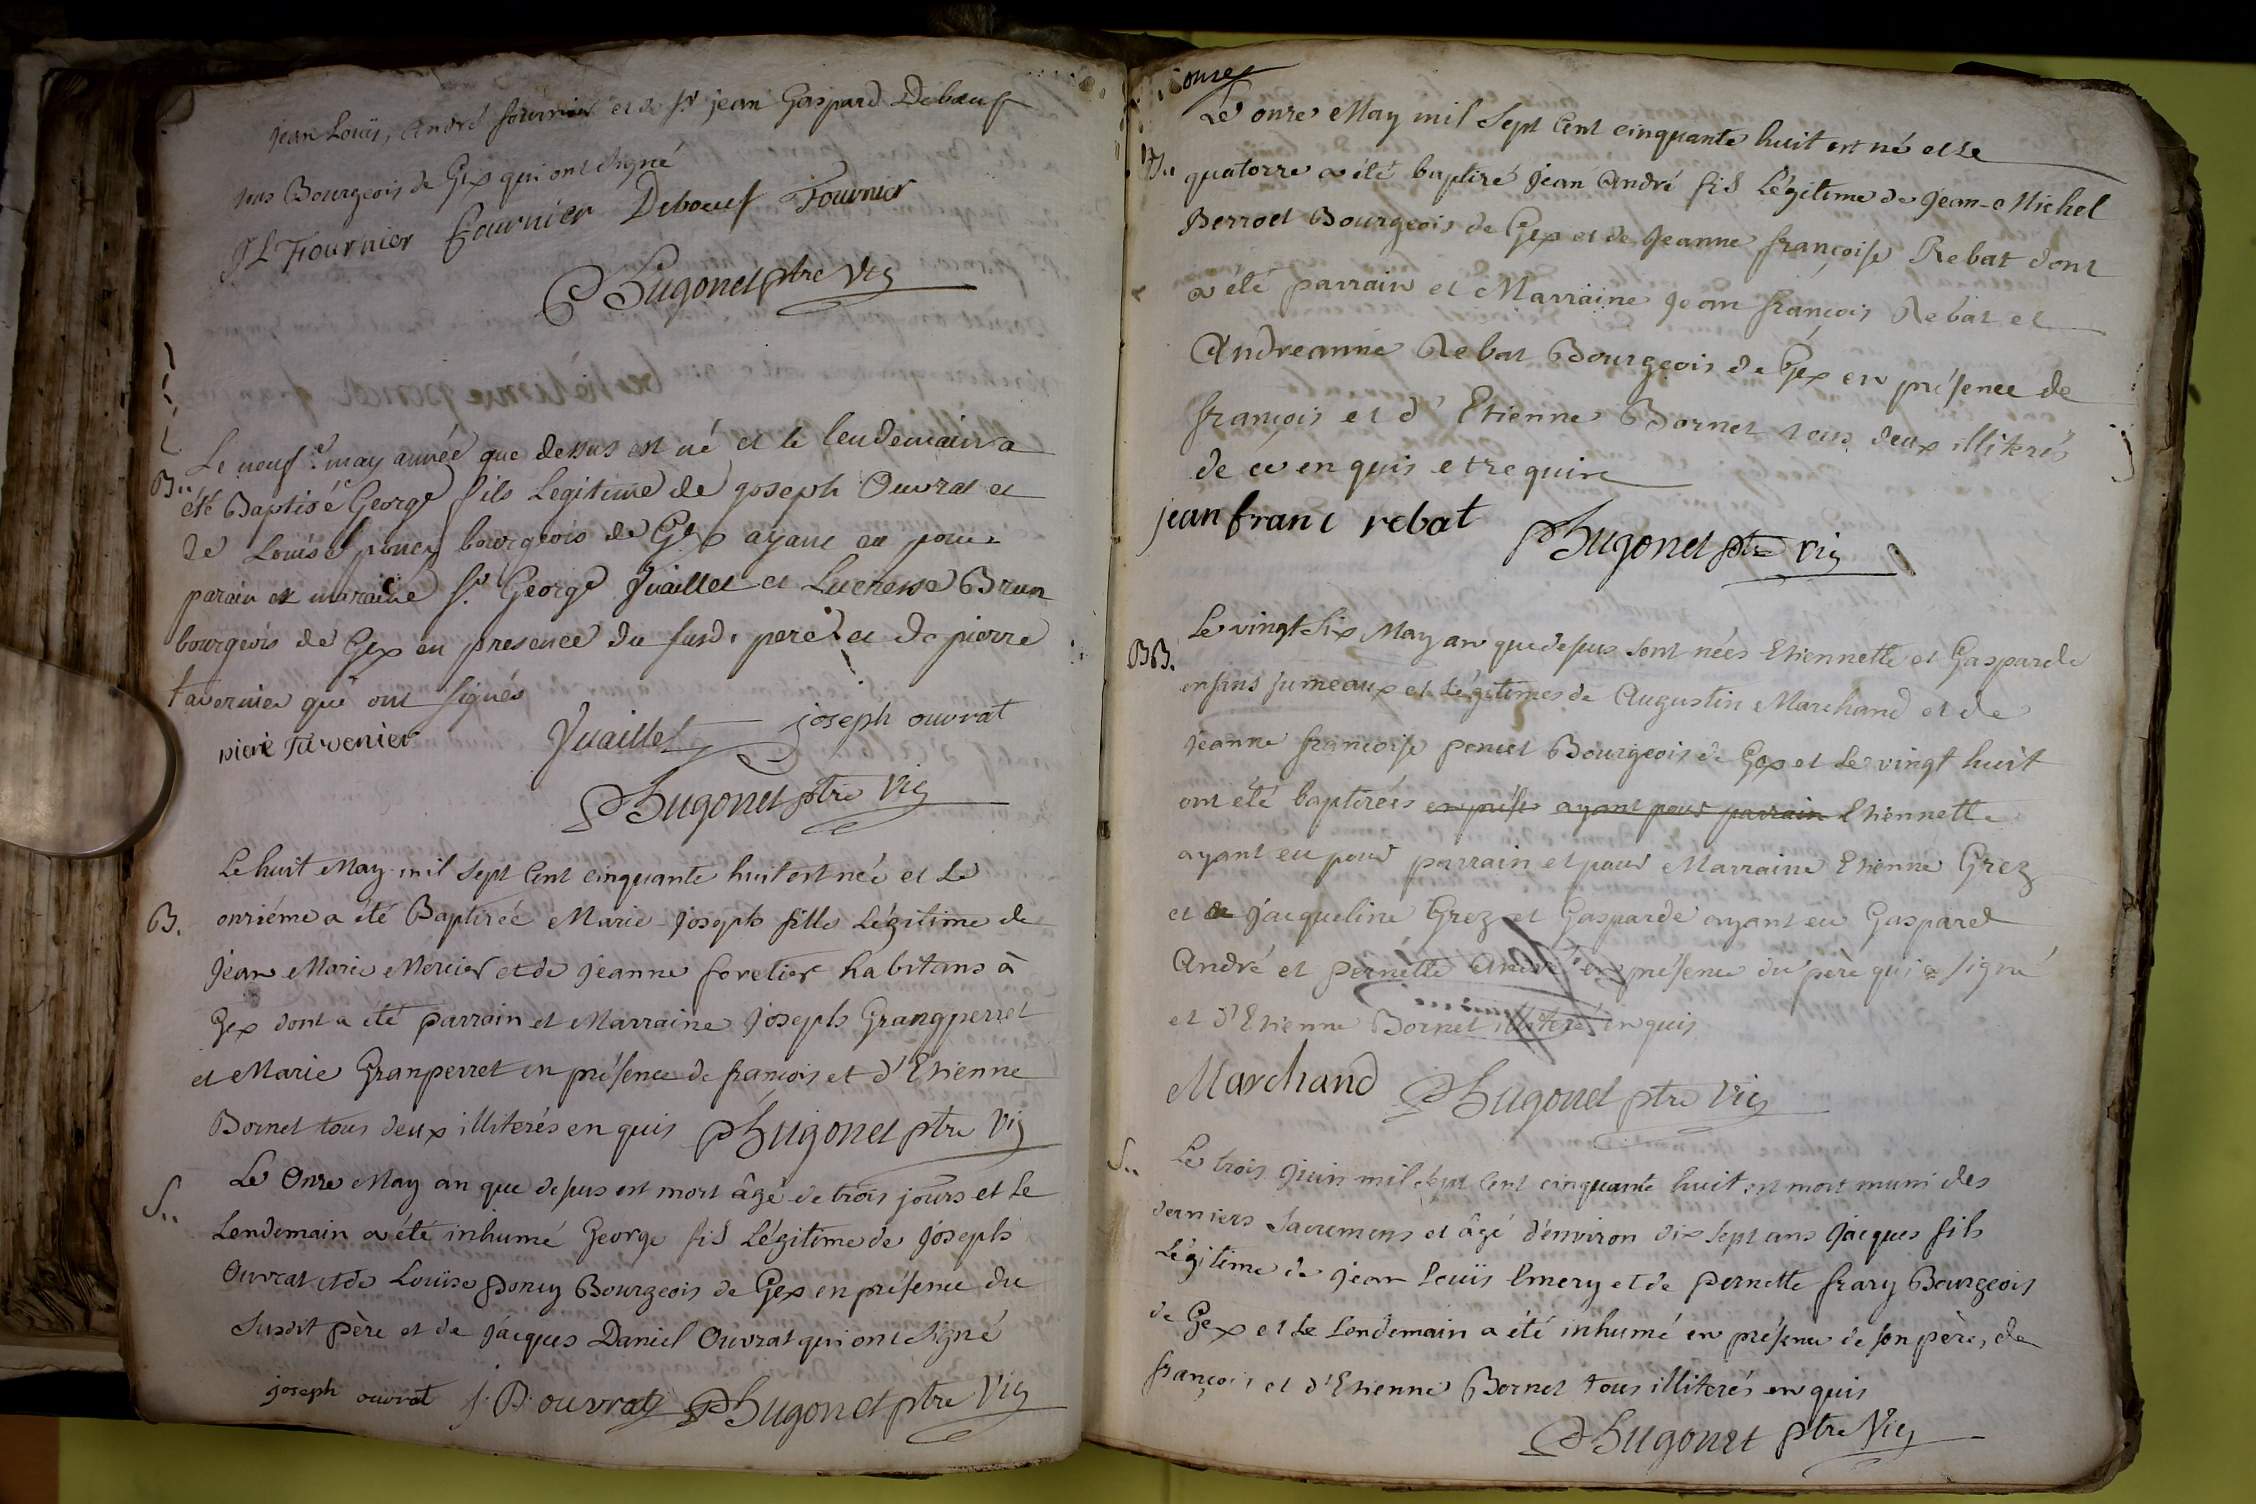 jean Louis, André fournier et de Sr jean Gaspard Deboeuf
tous Bourgeois de Gex qui ont signé
J L Fournier Fournier Deboeuf Fournier
Hugonet ptre Vic
Le neuf may année que dessus est né et le lendemain a
B.. été Baptisé George fils Legitime de joseph Ouvrat et
de Louise poncy bourgeois de Gex ayant eu pour
parain et maraine Sr George Juaillet et Lucresse Brun
bourgeois de Gex en presence du susd. pere et de pierre
tavernier qui ont signés
piere tavenier Juaillet joseph ouvrat
Hugonet ptre Vic
Le huit May mil Sept Cent cinquante huit est née et Le
B. onziéme a été Baptizée Marie Joseph fille Légitime de
Jean Marie Mercier et de Jeanne foretier habitans à
Gex dont a été parrain et Marraine Joseph Grangperret
et Marie Granperret en présence de françois et d'Etienne
Bornet tous deux illiterés enquis Hugonet ptre Vic
S.. Le Onze May an que dessus est mort âgé de trois jours et Le
Lendemain a été inhumé George fils Légitime de Joseph
Ouvrat et de Louise Poncy Bourgeois de Gex en présence du
susdit père et de Jacques Daniel Ouvrat qui ont signé
joseph ouvrat J. D. ouvrat Hugonet ptre Vic
onze
Le onze May mil Sept Cent cinquante huit est né et Le
B.. quatorze a été baptizé Jean André fils Légitime de Jean-Michel
Perroet Bourgeois de Gex et de Jeanne françoise Rebat dont
a été parrain et Marraine Jean françois Rebat et
Andreanne Rebat Bourgeois de Gex en présence de
françois et d'Etienne Bornet tous deux illiterés
de ce enquis et requis
jean franc rebat Hugonet ptre Vic
Le vingt Six May an que dessus sont nées Etiennette et Gasparde
BB. enfans jumeaux et Légitimes de Augustin Marchand et de
Jeanne françoise Pernet Bourgeois de Gex et Le vingt huit
ont été baptizées en présen ayant pour parrain Etiennette
ayant eu pour parrain et pour Marraine Etienne Grez
et Jacqueline Grez et Gasparde ayant eu Gaspard
André et Pernette André en présence du père qui a signé
et d'Etienne Bornet illiteré enquis
Marchand Hugonet ptre Vic
S.. Le trois Juin mil Sept Cent cinquante huit est mort muni des
derniers Sacremens et âgé d'environ dix Sept ans Jacques fils
Légitime de Jean Louis Emery et de Pernette frary Bourgeois
de Gex et Le Lendemain a été inhumé en présence de son père, de
françois et d'Etienne Bornet tous illiterés enquis
Hugonet ptre Vic